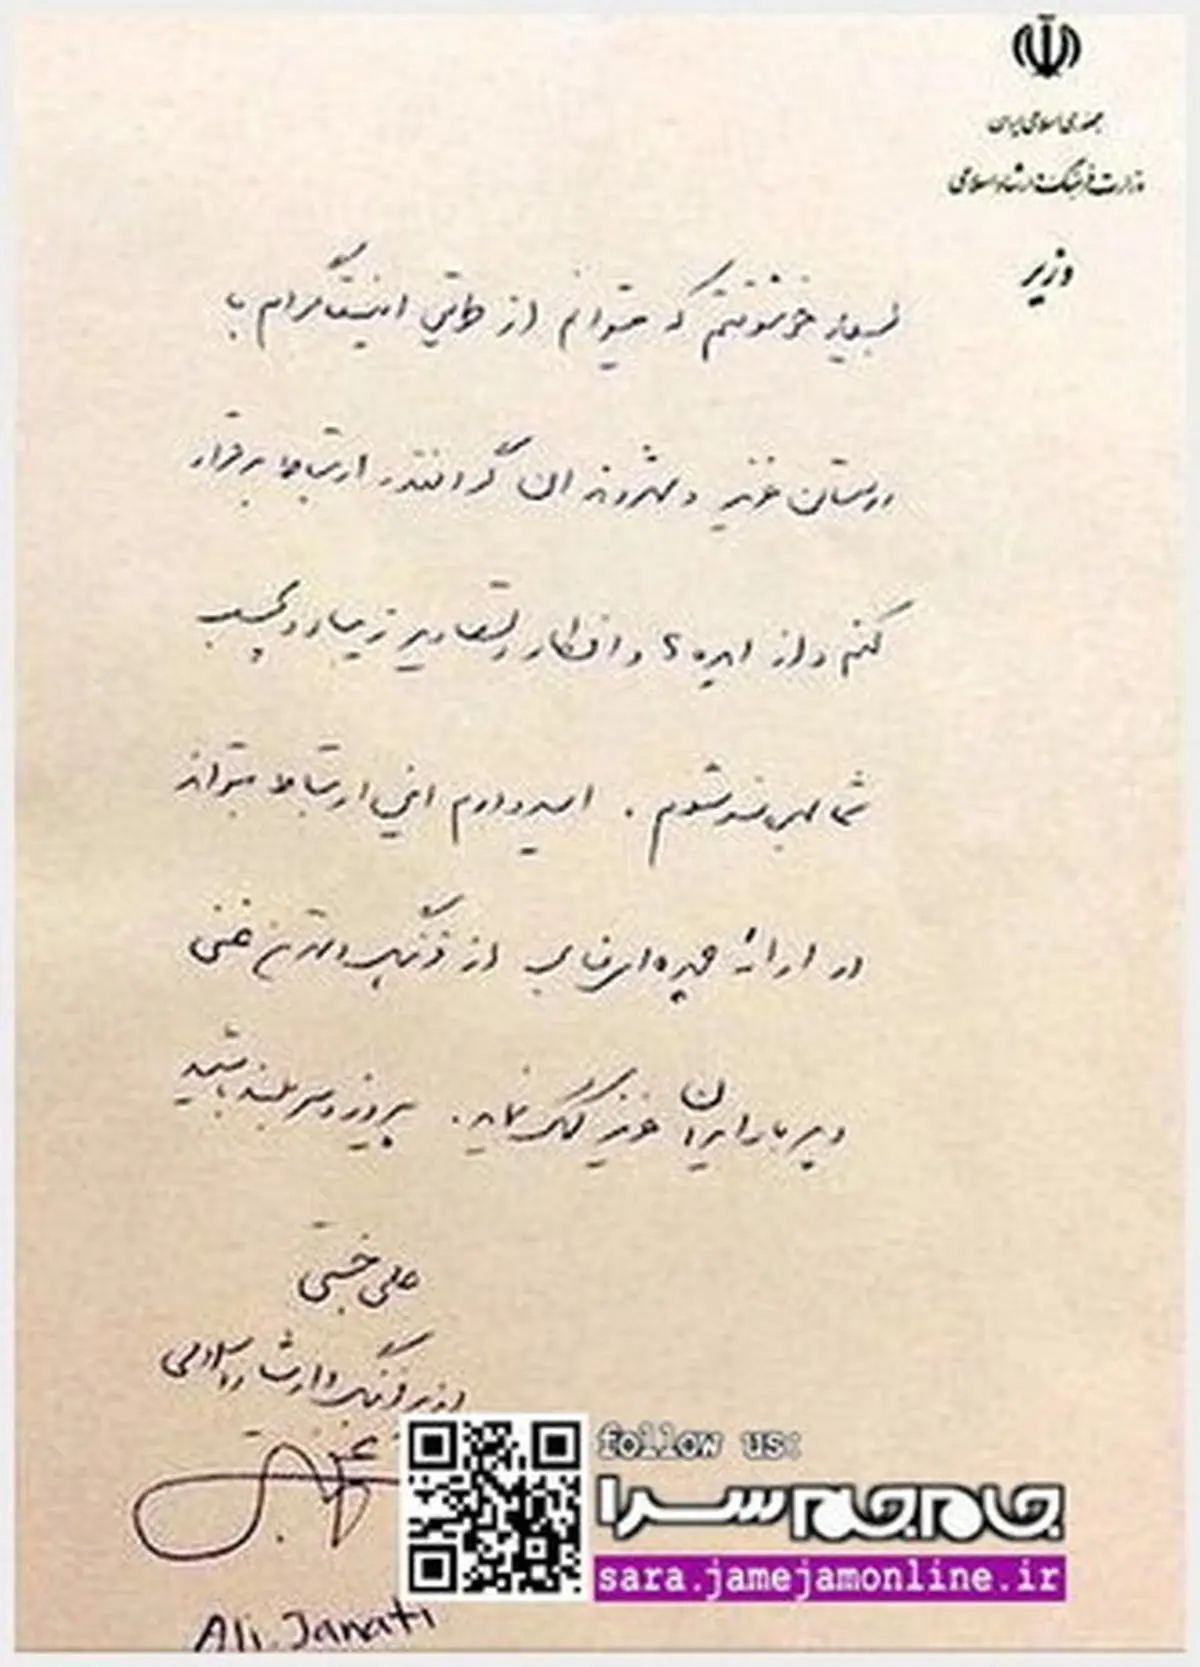 جمهوری اسلامی ایران
وزارت فرهنگ و ارشاد اسلامی
وزیر
بسیار خوشوقتم که میتوانم از طریق اینستاگرام با
دوستان عزیز و شهروندان گرانقدر ارتباط برقرار
کنم و از ایده ها و افکار و تصاویر زیبا و دلچسب
شما بهره مند شوم. امیدوارم این ارتباط بتواند
در ارائه چهره ای از فرهنگ و تمدن غنی
و پربار ایران عزیز کمک نماید. پیروز و سربلند باشید
علی جنتی
وزیر فرهنگ و ارشاد اسلامی
Ali.Janati
follow us:
جام جم سرا
sara.jamejamonline.ir